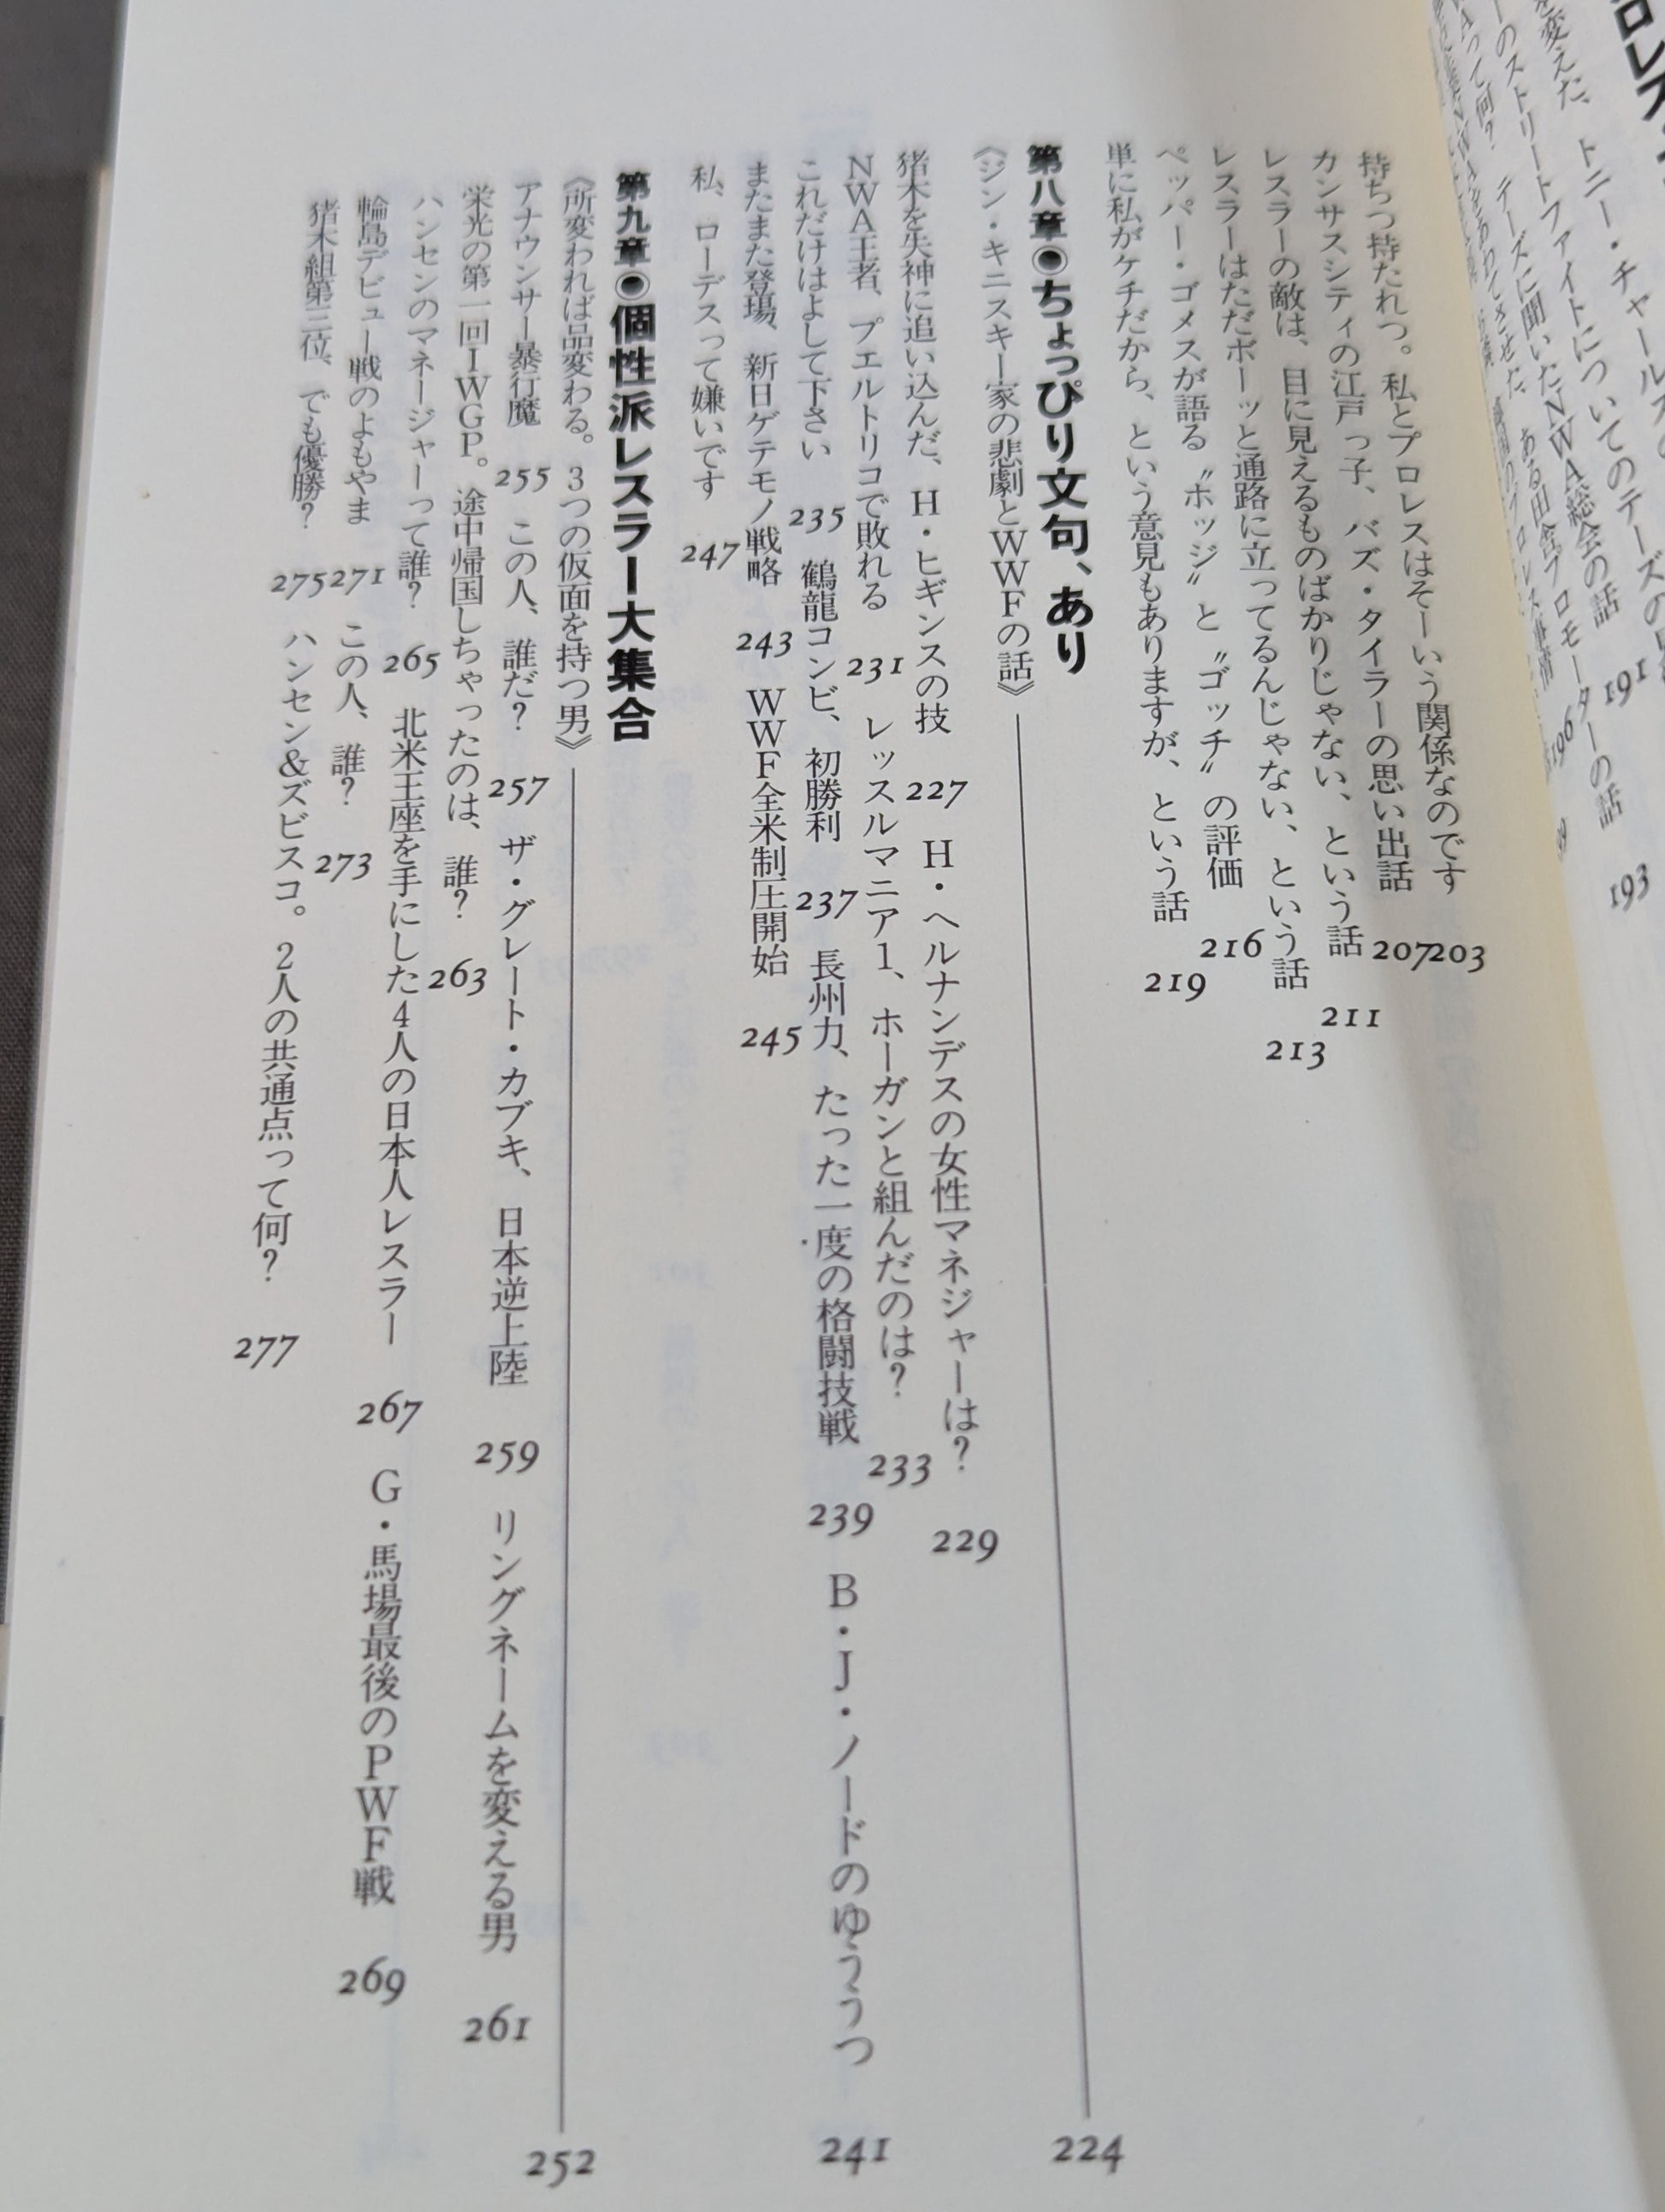 トニー・チャールスの
191
を変えた、テーズに聞いたNWA総会の話
ーのストリートファイトについてのテーズの
193
って何?
196
ある田舎プロモーターの話
持ちつ持たれつ。私とプロレスはそーいう関係なのです 203
カンサスシティの江戸っ子、バズ・タイラーの思い出話 207
レスラーの敵は、目に見えるものばかりじゃない、という話 211
レスラーはただボーッと通路に立ってるんじゃない、という話 213
ペッパー・ゴメスが語る〝ホッジ〟と〝ゴッチ〟の評価 216
単に私がケチだから、という意見もありますが、という話 219
第八章◉ちょっぴり文句、あり
《ジン・キニスキー家の悲劇とWWFの話》 224
猪木を失神に追い込んだ、H・ヒギンスの技 227 H・ヘルナンデスの女性マネジャーは? 229
NWA王者、プエルトリコで敗れる 231 レッスルマニア1、ホーガンと組んだのは? 233
これだけはよして下さい 235 鶴龍コンビ、初勝利 237 長州力、たった一度の格闘技戦 239 B・J・ノードのゆううつ 241
またまた登場、新日ゲテモノ戦略 243 WWF全米制圧開始 245
私、ローデスって嫌いです 247
第九章◉個性派レスラー大集合
《所変われば品変わる。3つの仮面を持つ男》 252
アナウンサー暴行魔 255 この人、誰だ? 257 ザ・グレート・カブキ、日本逆上陸 259 リングネームを変える男 261
栄光の第一回IWGP。途中帰国しちゃったのは、誰? 263
ハンセンのマネージャーって誰? 265 北米王座を手にした4人の日本人レスラー 267 G・馬場最後のPWF戦 269
輪島デビュー戦のよもやま 271 この人、誰? 273
猪木組第三位、でも優勝? 275 ハンセン&ズビスコ。2人の共通点って何? 277